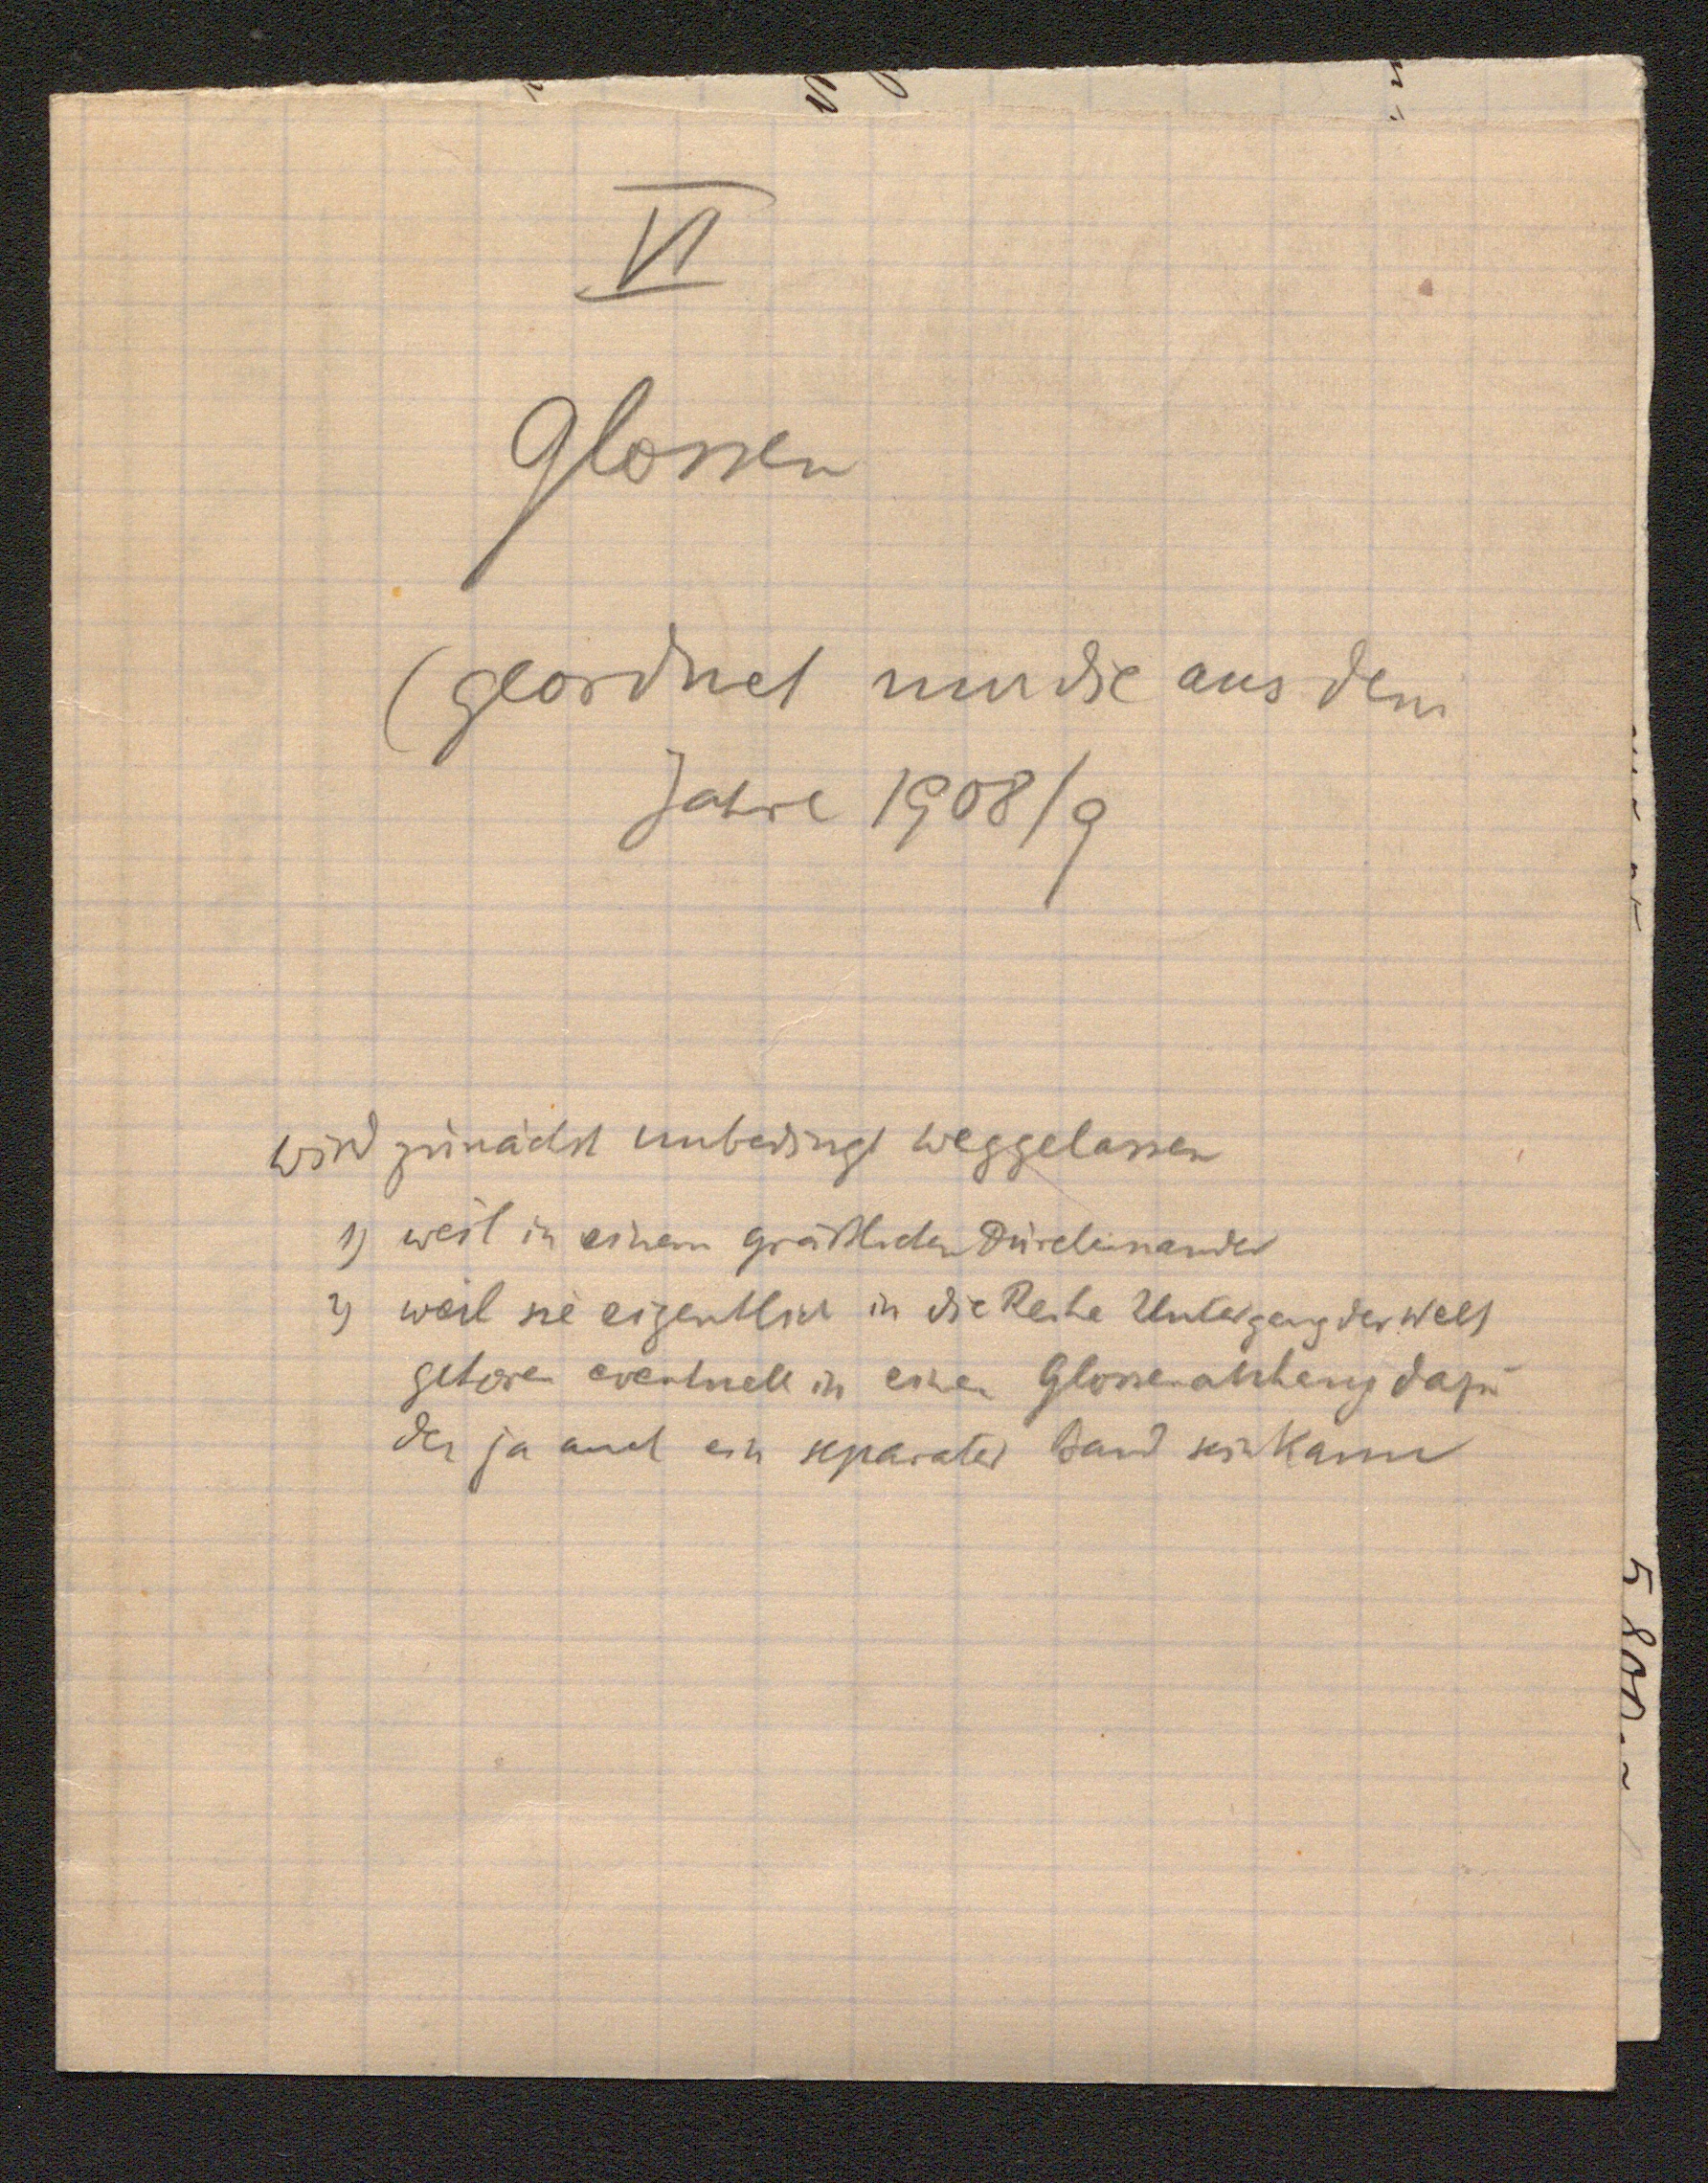 VI
Glossen
(geordnet nur die aus dem
Jahre 1908/9
wird zunächst unbedingt weggelassen
1) weil in einem gräßlichen Durcheinander
2) weil sie eigentlich in die Reihe Untergang der Welt
gehören eventuell in einen Glossenanhang dazu
der ja auch ein separater Band sein kann
5800